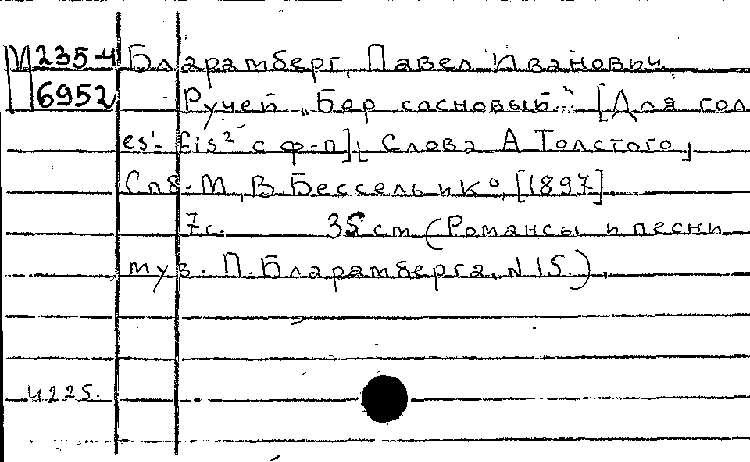 М235-4 Бларамберг, Павел Иванович
6952 Ручей „Бор сосновый..." [Для гол.
es'-fis² с ф-п]. Слова А Толстого.
Спб.-М., В. Бессель и К°, [1897].
7с. 35 см (Романсы и песни
муз. П. Бларамберга, N 15).
4225.